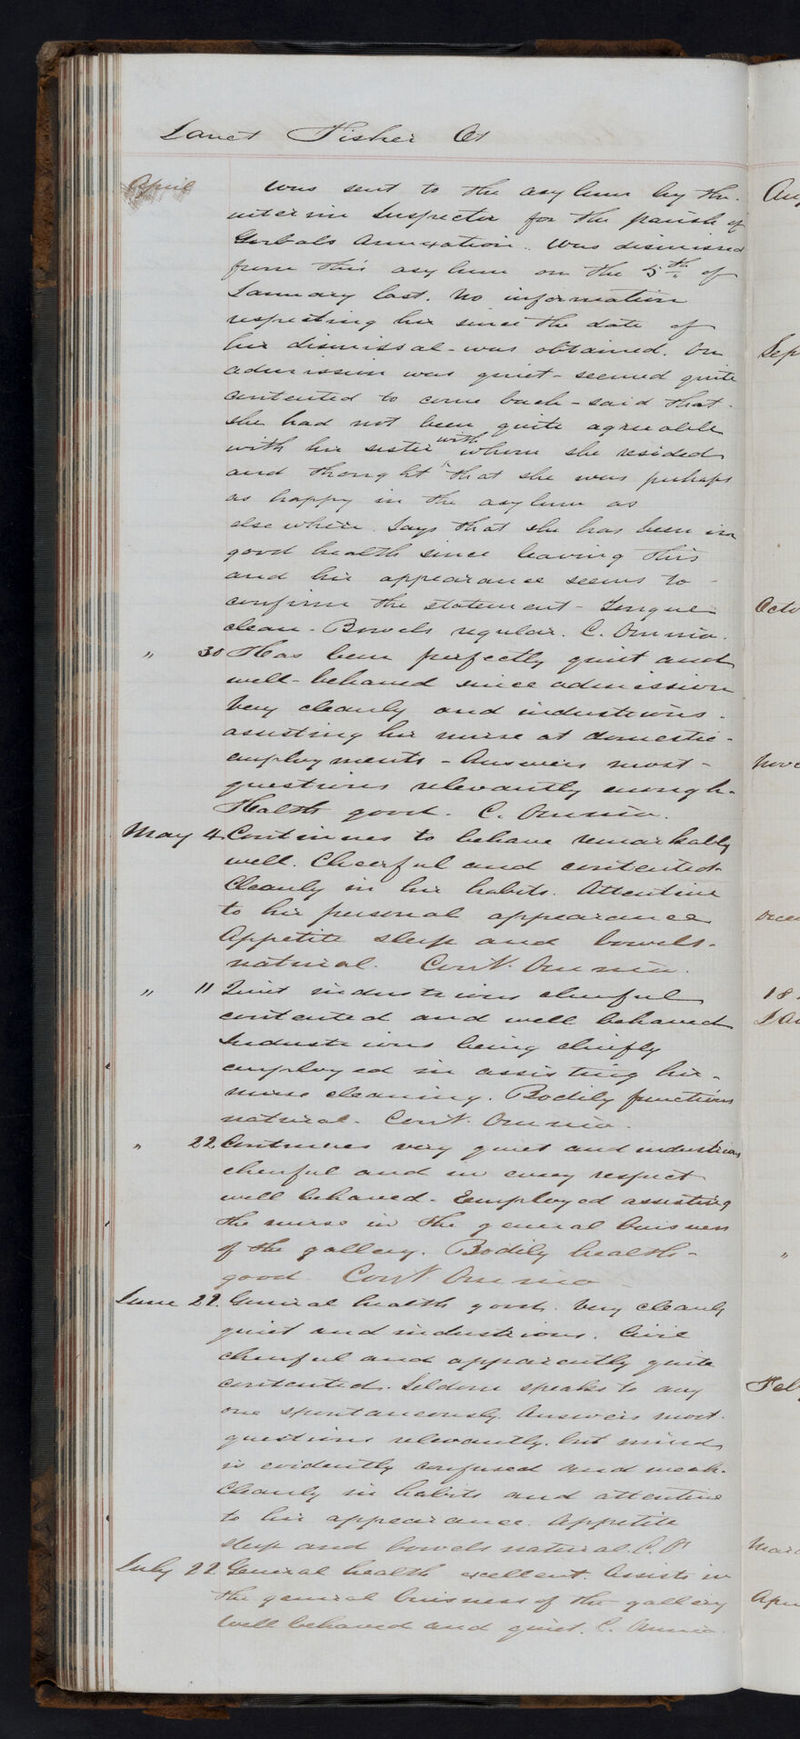 Janet Fisher Ct
April was sent to the asylum by the
interim Inspector for the parish of
Gorbals Annexation. Was dismissed
from this asylum on the 5th of
January last. No information
respecting her since the date of
her dismissal - was obtained. On
admission was quiet - seemed quite
contented to come back - said that
she had not been quite agreeable
with her sister with whom she resided
and thought that she was perhaps
as happy in the asylum as
elsewhere. Says that she has been in
good health since leaving this
and her appearance seems to
confirm the statement - Tongue
clean - Bowels regular. C. Omnia.
" 30 Has been perfectly quiet and
well-behaved since admission
Very cleanly and industrious.
assisting her nurse at domestic
employments - Answers most
questions relevantly enough.
Health good. C. Omnia.
May 4 Continues to behave remarkably
well. Cheerful and contented.
Cleanly in her habits. Attentive
to her personal appearance
Appetite sleep and bowels
natural. Cont. Omnia.
" 11 Quiet industrious cheerful
contented and well behaved
Industrious being chiefly
employed in assisting her
nurse cleaning. Bodily functions
natural. Cont. Omnia.
" 22 Continues very quiet and industrious
cheerful and in every respect
well behaved. Employed assisting
the nurse in the general buisness
of the gallery. Bodily health
good Cont Omnia
June 22. General health good. Very cleanly
quiet and industrious. Civil
cheerful and apparently quite
contented. Seldom speaks to any
one spontaneously. Answers most
questions relevantly. but mind
is evidently confused and weak.
Cleanly in habits and attentive
to her appearance. Appetite
sleep and bowels natural. C. O
July 22 General health excellent. Assists in
the general buisness of the gallery
Well behaved and quiet. C. Omnia.
Aug
Sep
Octo
Nove
Dece
18
Jan
"
Feb
Marc
Apri